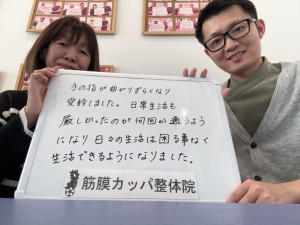 手の指が曲がりずらくなり
受診しました。日常生活も
厳しかったのが何回か通うよう
になり日々の生活は困る事なく
生活できるようになりました。
筋膜カッパ整体院